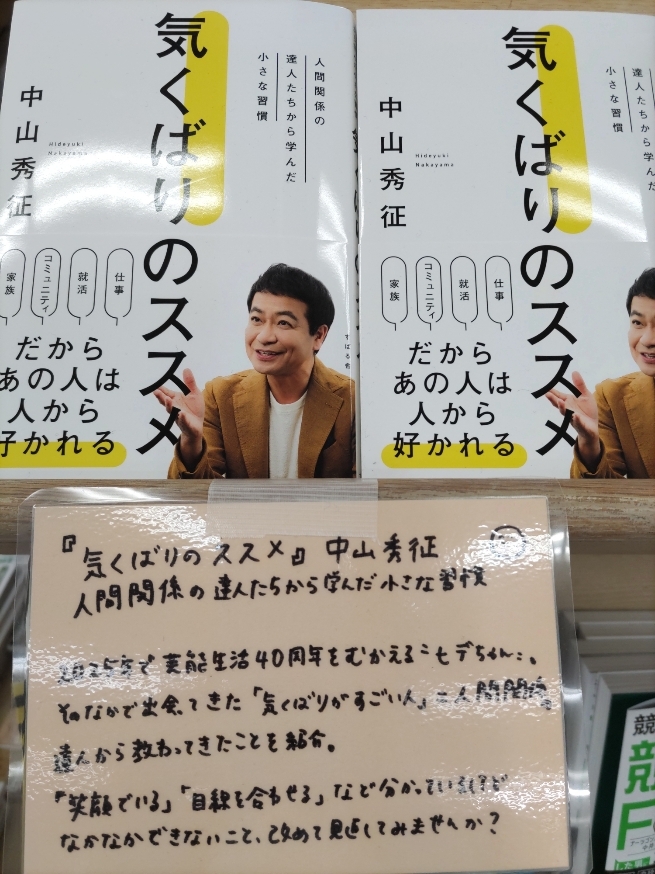 人間関係の
達人たちから学んだ
小さな習慣
気くばりのススメ
中山秀征
Hideyuki
Nakayama
仕事
就活
コミュニティ
家族
だから
あの人は
人から
好かれる
すばる舎
達人たちから学んだ
小さな習慣
気くばりのススメ
中山秀征
Hideyuki
Nakayama
仕事
就活
コミュニティ
家族
だから
あの人は
人から
好かれる
『気くばりのススメ』 中山秀征
人間関係の達人たちから学んだ小さな習慣
2025年で芸能生活40周年をむかえるヒデちゃん。
そのなかで出会ってきた「気くばりがすごい人」=人間関係
達人から教わってきたことを紹介。
「笑顔でいる」「目線を合わせる」など分かっているけど
なかなかできないこと、改めて見直してみませんか?
競